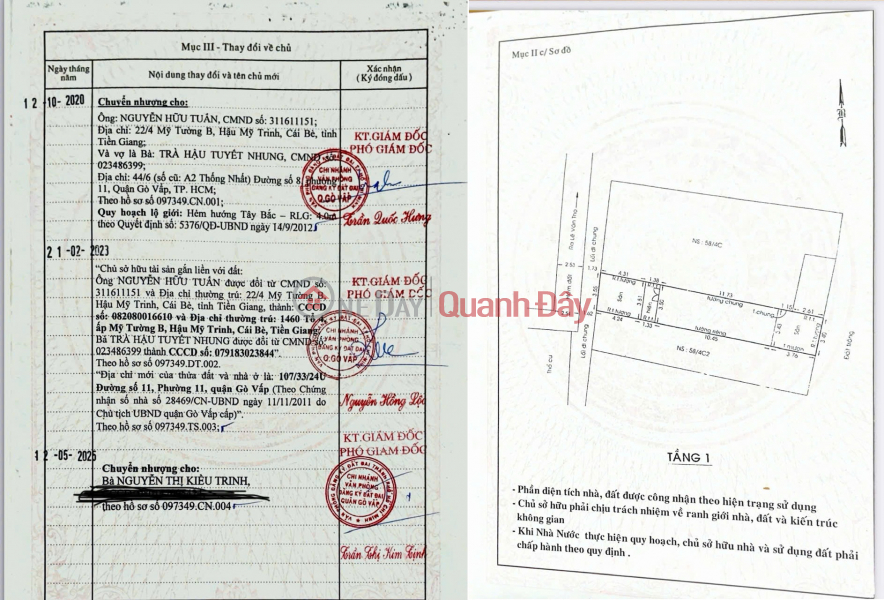 Mục III - Thay đổi về chủ
Ngày tháng năm
Nội dung thay đổi và tên chủ mới
Xác nhận
(Ký đóng dấu)
12-10-2020
Chuyển nhượng cho:
Ông: NGUYỄN HỮU TUẤN, CMND số: 311611151;
Địa chỉ: 22/4 Mỹ Tường B, Hậu Mỹ Trinh, Cái Bè, tỉnh
Tiền Giang;
Và vợ là Bà: TRÀ HẬU TUYẾT NHUNG, CMND số
023486399;
Địa chỉ: 44/6 (số cũ: A2 Thống Nhất) Đường số 8, Phường
11, Quận Gò Vấp, TP. HCM;
Theo hồ sơ số 097349.CN.001;
Quy hoạch lộ giới: Hẻm hướng Tây Bắc – RLG: 4.0m
theo Quyết định số: 5376/QĐ-UBND ngày 14/9/2012
KT.GIÁM ĐỐC
PHÓ GIÁM ĐỐC
CHI NHÁNH
VĂN PHÒNG
ĐĂNG KÝ ĐẤT ĐAI
Q.GÒ VẤP
Trần Quốc Hưng
21-02-2023
“Chủ sở hữu tài sản gắn liền với đất:
Ông NGUYỄN HỮU TUẤN được đổi từ CMND số:
311611151 và Địa chỉ thường trú: 22/4 Mỹ Tường B,
Hậu Mỹ Trinh, Cái Bè, tỉnh Tiền Giang, thành: CCCD
số: 082080016610 và Địa chỉ thường trú: 1460 Tổ 4,
ấp Mỹ Tường B, Hậu Mỹ Trinh, Cái Bè, Tiền Giang.
Bà TRÀ HẬU TUYẾT NHUNG được đổi từ CMND số:
023486399 thành CCCD số: 079183023844”.
Theo hồ sơ số 097349.DT.002.
“Địa chỉ mới của thửa đất và nhà ở là: 107/33/24U
Đường số 11, Phường 11, quận Gò Vấp (Theo Chứng
nhận số nhà số 28469/CN-UBND ngày 11/11/2011 do
Chủ tịch UBND quận Gò Vấp cấp)”.
Theo hồ sơ số 097349.TS.003;
KT.GIÁM ĐỐC
PHÓ GIÁM ĐỐC
CHI NHÁNH
VĂN PHÒNG
ĐĂNG KÝ ĐẤT ĐAI
Q.GÒ VẤP
Nguyễn Hồng Lộc
12-05-2025
Chuyển nhượng cho:
Bà NGUYỄN THỊ KIỀU TRINH,
theo hồ sơ số 097349.CN.004
KT.GIÁM ĐỐC
PHÓ GIAM ĐỐC
CHI NHÁNH
VĂN PHÒNG
ĐĂNG KÝ ĐẤT ĐAI
QUẬN GÒ VẤP
Trần Thị Kim Định
Quanh Đây
Mục II c/ Sơ đồ
B
Ra Lê Văn Thọ
Lối đi chung
NS: 58/4C
2.53
1.73
4.31
1.38
11.73
tường chung
1.15
2.61
Sân
3.51
hiên
3.50
tường riêng
10.45
4.24
1.33
3.43
Sân
3.76
3.45
NS: 58/4C2
Lối đi chung
Thổ cư
Đất trống
TẦNG 1
- Phần diện tích nhà, đất được công nhận theo hiện trạng sử dụng
- Chủ sở hữu phải chịu trách nhiệm về ranh giới nhà, đất và kiến trúc
không gian
- Khi Nhà Nước thực hiện quy hoạch, chủ sở hữu nhà và sử dụng đất phải
chấp hành theo quy định .